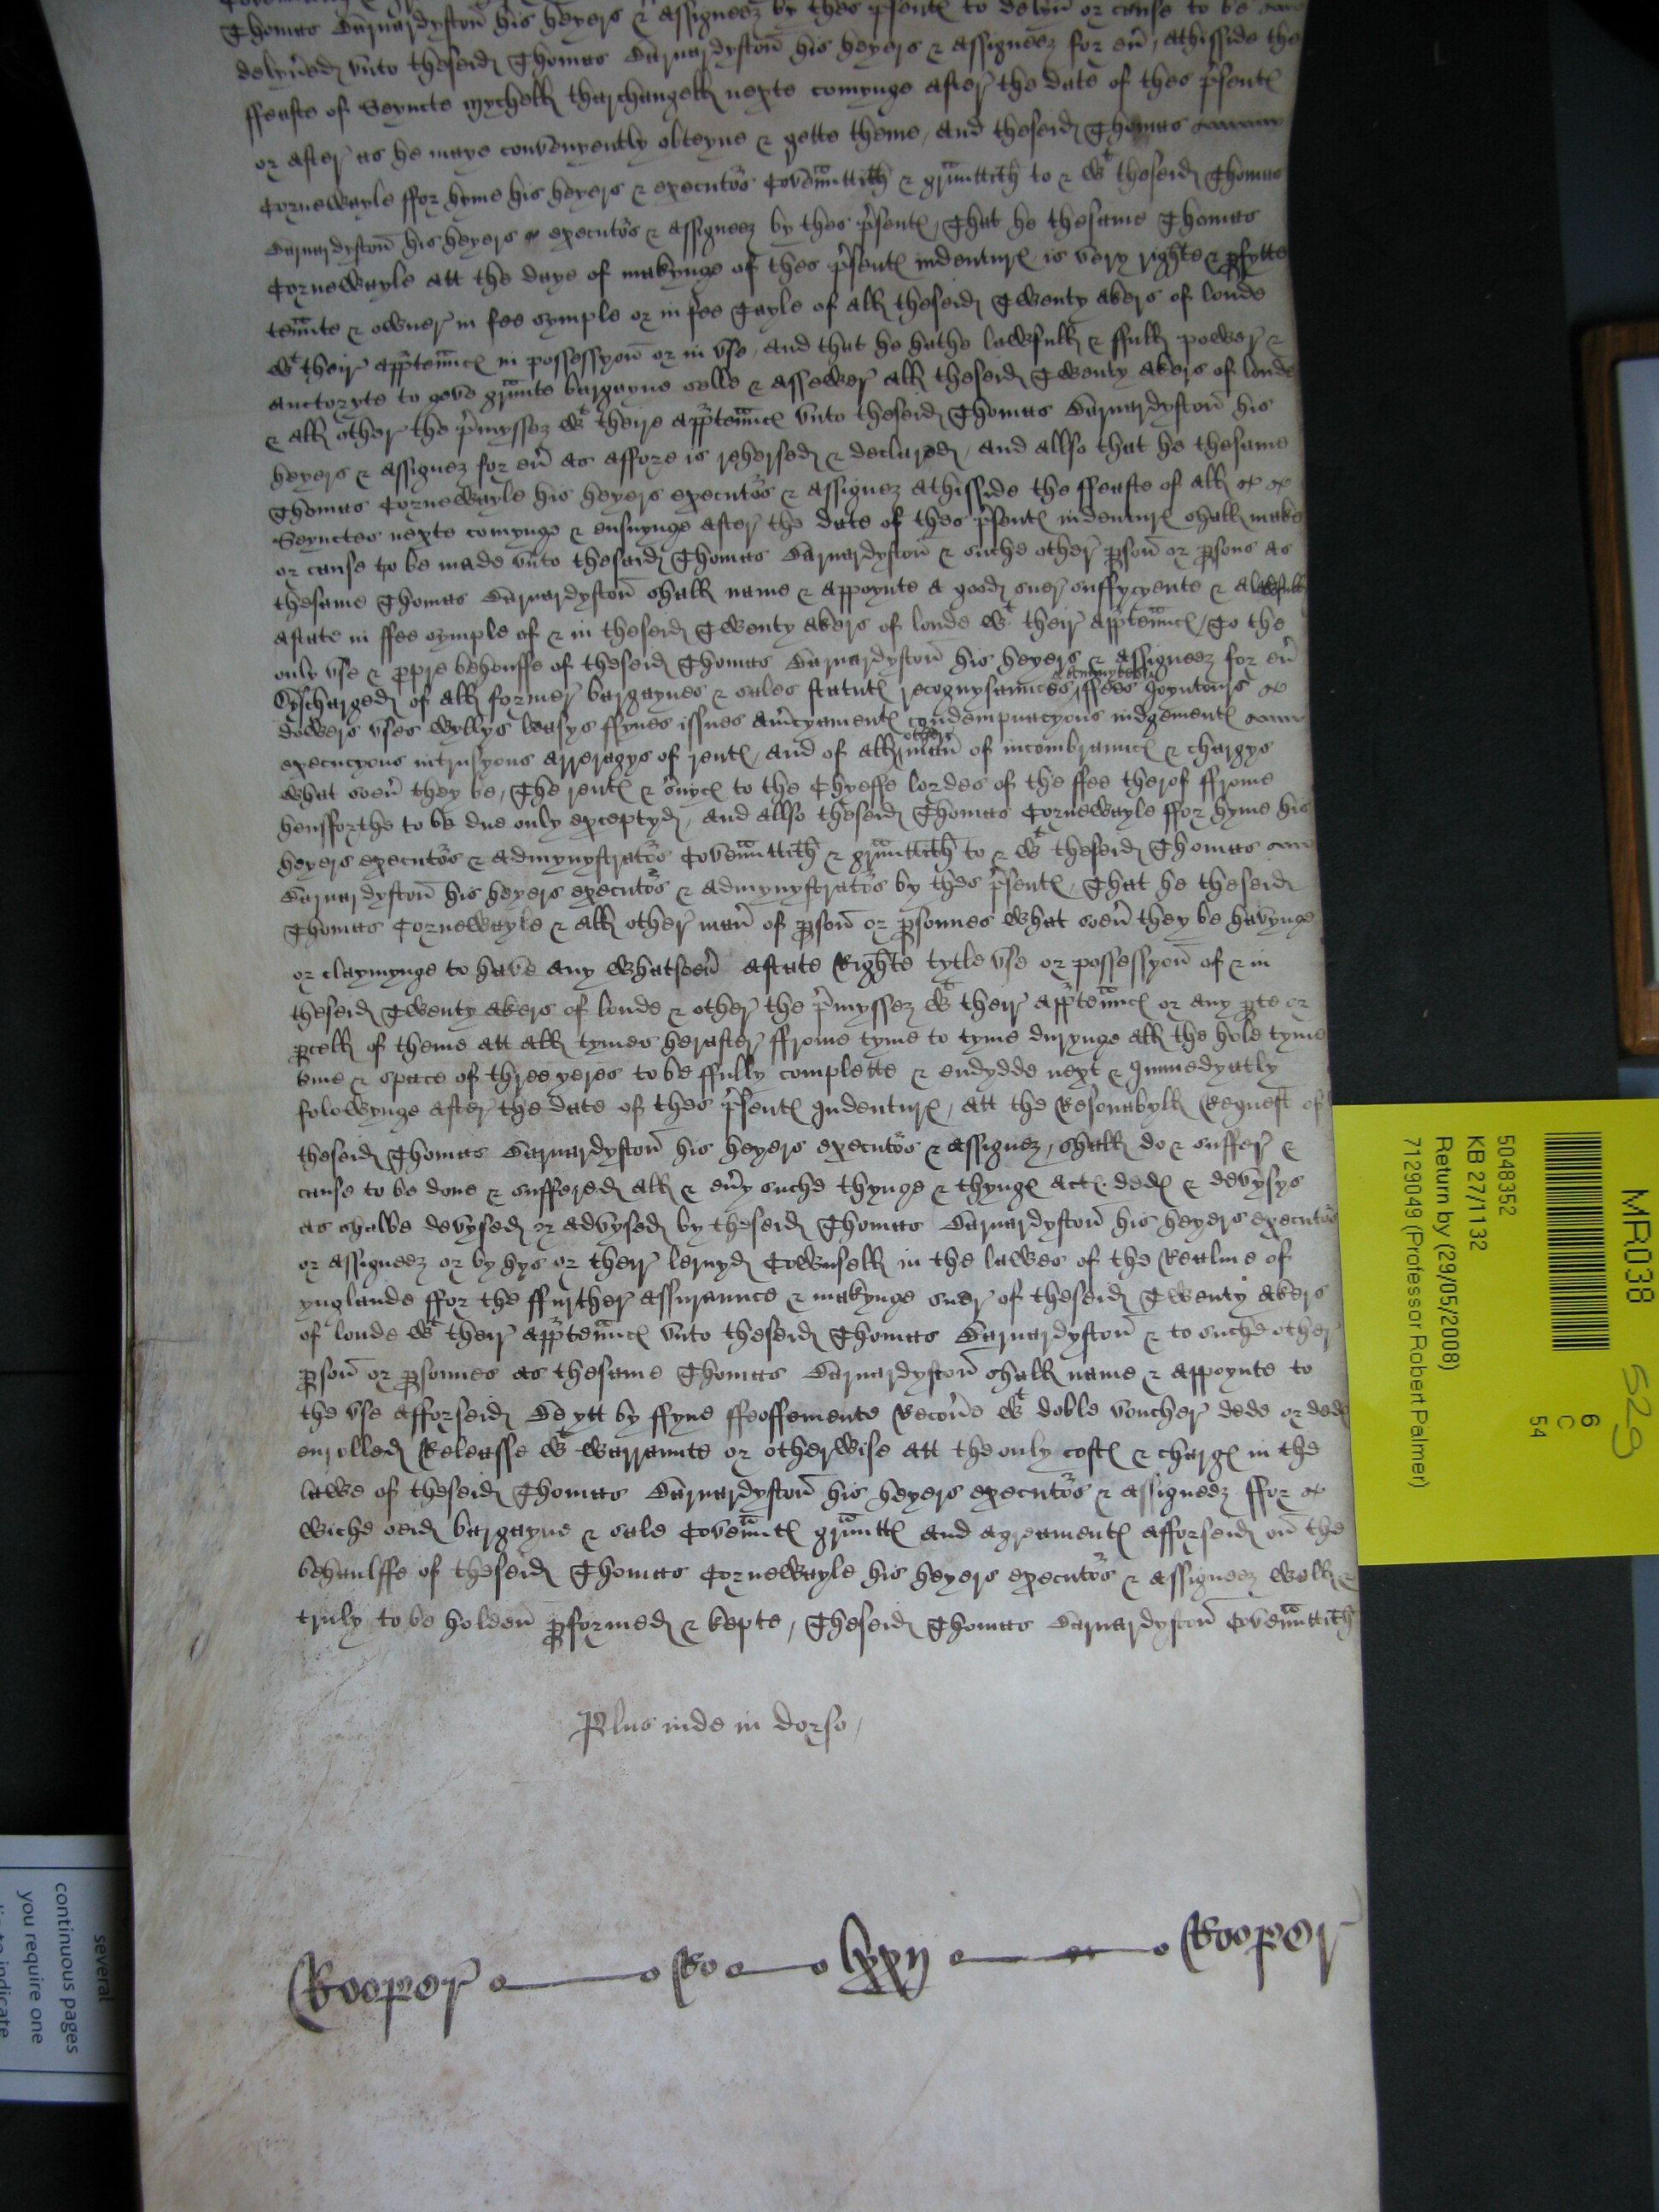 Thomas Barnardyston his heyers & assigneez by thes p'sent to delyu' or cause to be
delyu'ed vnto theseid Thomas Barnardyston his heyers & assigneez for eu', athisside the
ffeaste of Seyncte Mychell tharchangell nexte comynge after the date of thes p'sent
or after as he maye convenyently obteyne & gette theme, And theseid Thomas
Cornewayle ffor hyme his heyers & executors Covenntith & grunttith to & wt theseid Thomas
Barnardyston his heyers executors & assigneez by thes p'sent, That he thesame Thomas
Cornewayle att the daye of makynge of thes p'sent indentur is very righte & p'fytte
tennte & owner in fee symple or in fee Tayle of all theseid Twenty akers of londe
wt their app'tennc in possessyon or in vse, And that he hathe lawfull & ffull power &
auctoryte to geve graunte bargayne selle & assewer all theseid Twenty akers of londe
& all other the p'myssez wt theire app'tennc vnto theseid Thomas Barnardyston his
heyers & assignez for eu' as affore is rehersed & declared, And allso that he thesame
Thomas Cornewayle his heyers executors & assignez athisside the ffeaste of all
Seynctes nexte comynge & ensuynge after the date of thes p'sent indentur shall make
or cause to be made vnto thesaid Thomas Barnardyston & suche other p'son or p'sons as
thesame Thomas Barnardyston shall name & appoynte a good suer suffycyente & a lawfull
astate in ffee symple of & in theseid Twenty akers of londe wt their app'tennc, To the
only vse & p'pre behouffe of theseid Thomas Barnardyston his heyers & assigneez for eu'
Dyscharged of all former bargaynes & sales statut recognysannces ffees Joyntours
dowers vses wyllys leasys ffynes issues am'cyament condempnacyons iudgement
execucyons intrusyons arreragys of rent, And of all other man' of incombrannc & chargys
what soeu' they be, The rent & s'uyc to the Chyeffe lordes of the ffee therof ffrome
hensfforthe to be due only exceptyd, And allso theseid Thomas Cornewayle ffor hyme his
heyers executors & admynystrators Covenntith & grunttith to & wt theseid Thomas
Barnardyston his heyers executors & admynystrators by thes p'sent, That he theseid
Thomas Cornewayle & all other man' of p'son or p'sonnes what soeu' they be havynge
or claymynge to have any whatsoeu' astate Righte tytle vse or possessyon of & in
theseid Twenty akers of londe & other the p'myssez wt their app'tennc or any p'te or
p'cell of theme att all tymes herafter ffrome tyme to tyme durynge all the hole tyme
tme & space of three yeres to be ffully complette & endydde next & Immedyatly
folowynge after the date of thes p'sent Indentur, att the Resonabyll Request of
theseid Thomas Barnardyston his heyers executors & assignez, shall do & suffer &
cause to be done & suffered all & eu'y suche thynge & thyng act ded & devysys
as shalbe devysed or advysed by theseid Thomas Barnardyston his heyers executors
or assigneez or by hys or their lernyd Cownsell in the lawes of the Realme of
ynglande ffor the ffurther assurannce & makynge suer of theseid Twenty Akers
of londe wt their app'tennc vnto theseid Thomas Barnardyston & to suche other
p'son or p'sonnes as thesame Thomas Barnardyston shall name & appoynte to
the vse afforseid Be ytt by ffyne ffeoffemente Recou'e wt doble voucher dede or dede
enrolled Releasse wt warrannte or otherwise att the only cost & charg in the
lawe of theseid Thomas Barnardyston his heyers executors & assigneez ffor
wiche seid bargayne & sale Covennt grunt and agreament afforseid on the
behaulffe of theseid Thomas Cornewayle his heyers executors & assigneez well &
truly to be holden p'formed & kepte, Theseid Thomas Barnardyston Covenntith
Plus inde in dorso,
Rooper Ro lxxij Rooper
MR038
5048352
KB 27/1132
Return by (29/05/2008)
7129049 (Professor Robert Palmer)
6
C
54
529
several
continuous pages
you require one